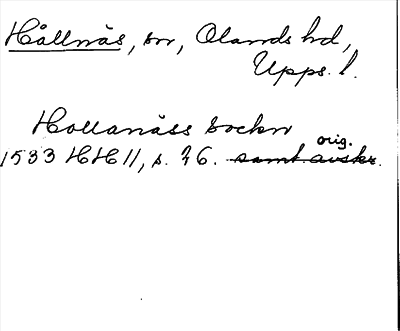 Hållnäs, sn, Olands hd,
Upps. l.
Hollanäss sockn
orig.
1533 HH 11, s. 76. samt avskr.